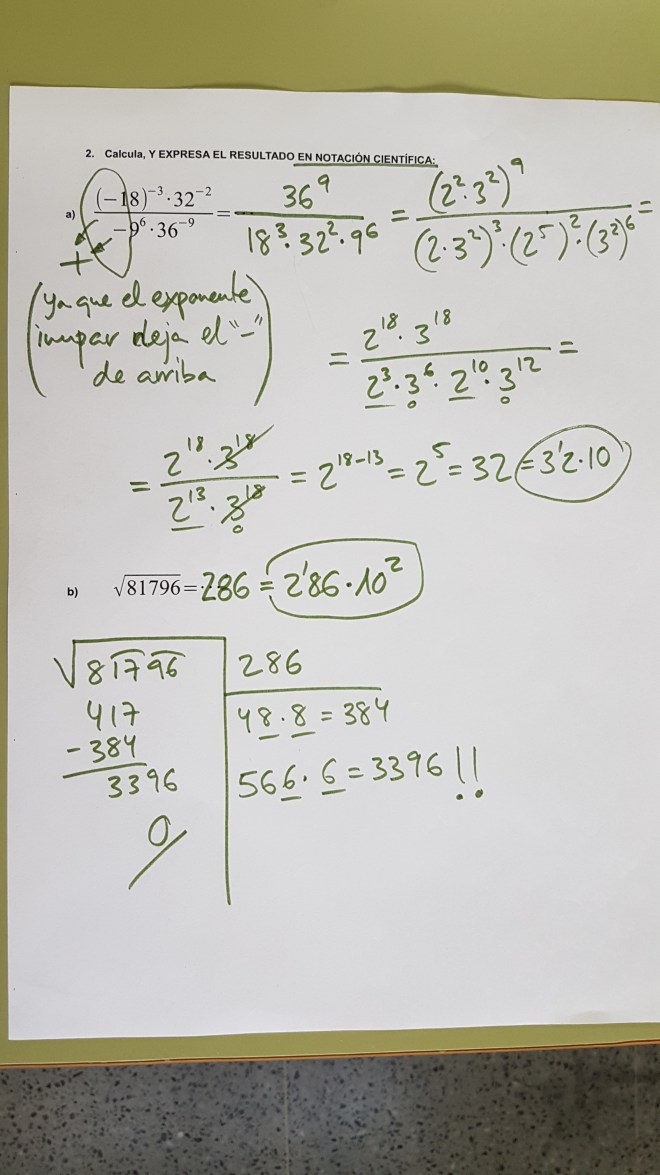 2. Calcula, Y EXPRESA EL RESULTADO EN NOTACIÓN CIENTÍFICA:
a) ((−18)⁻³·32⁻²)/(−9⁶·36⁻⁹) = 36⁹/(18³·32²·9⁶) = (2²·3²)⁹/((2·3²)³·(2⁵)²·(3²)⁶) =
+
(ya que el exponente
impar deja el "−"
de arriba)
= (2¹⁸·3¹⁸)/(2³·3⁶·2¹⁰·3¹²) =
= (2¹⁸·3¹⁸)/(2¹³·3¹⁸) = 2¹⁸⁻¹³ = 2⁵ = 32 = 3'2·10
b) √81796 = 286 = 2'86·10²
√81796 286
417 48·8 = 384
−384
3396 566·6 = 3396 !!
0